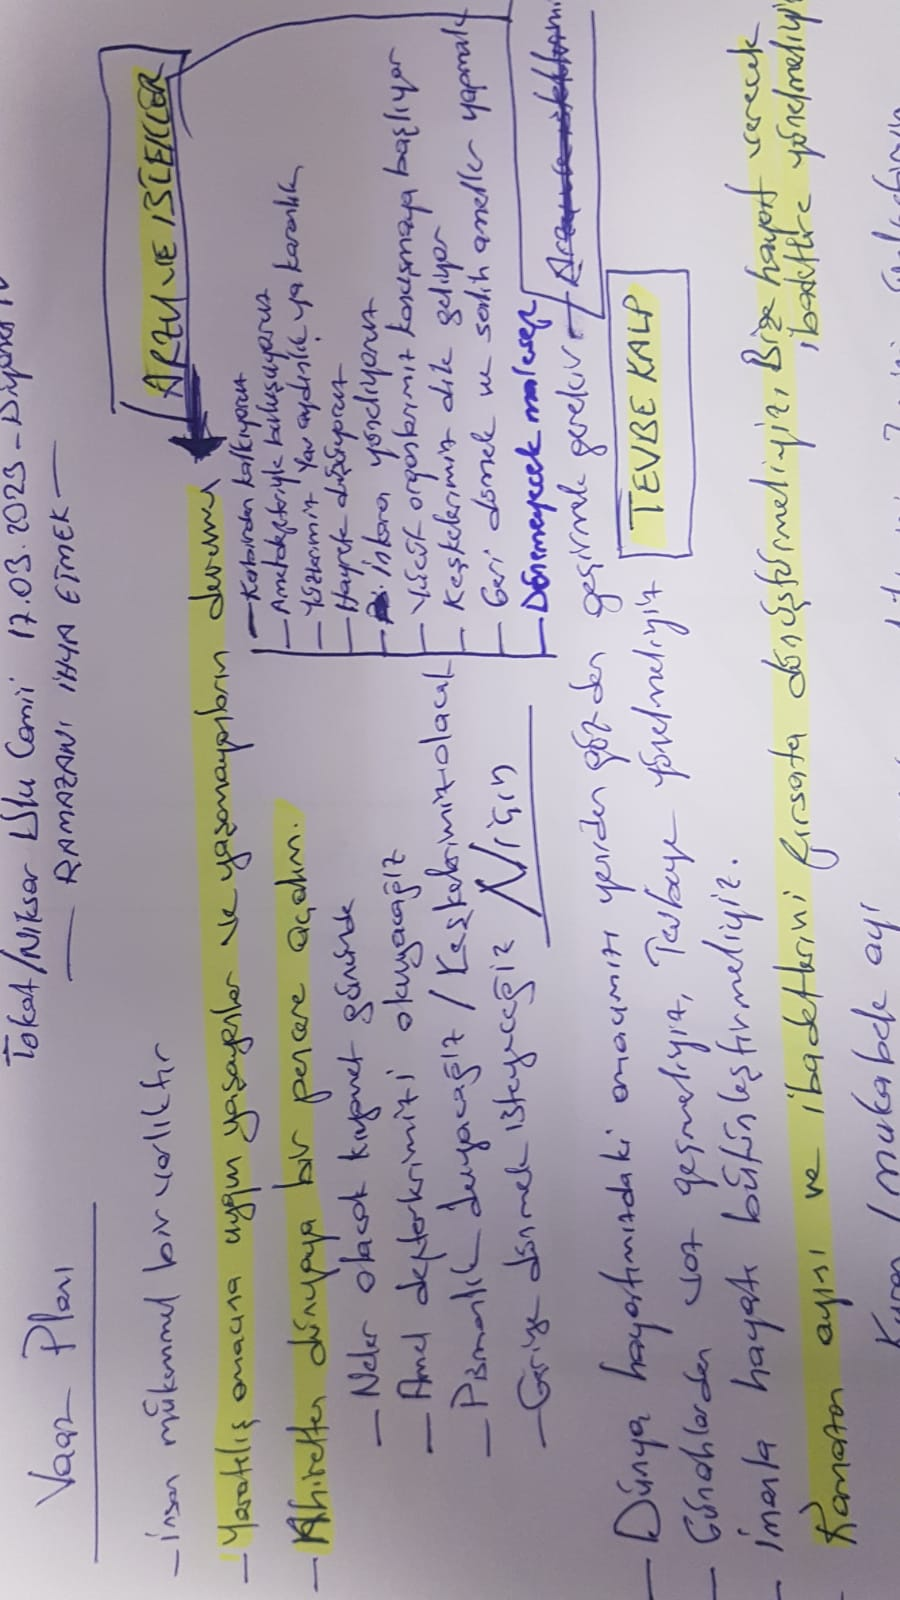 Vaaz Planı
Tokat/Niksar Ulu Camii 17.03.2023 - Diyanet TV
— RAMAZANI İHYA ETMEK —
ARZU VE İSTEKLER
- İnsan mükemmel bir varlıktır
- Yaratılış amacına uygun yaşayanlar ve yaşamayanların durumu
- Ahiretten dünyaya bir pencere açalım.
- Neler olacak kıyamet gününde
- Amel defterlerimizi okuyacağız
- Pişmanlık duyacağız / Keşkelerimiz olacak
- Geriye dönmek isteyeceğiz / Niçin
- Kabirden kalkıyoruz
- Amel defteriyle buluşuyoruz
- Yüzlerimiz ya aydınlık ya karanlık
- Hayrete düşüyoruz
- İnkara yöneliyoruz
- Vücut organlarımız konuşmaya başlıyor
- Keşkelerimiz dile geliyor
- Geri dönmek ve salih ameller yapmak
- Dönemeyecek
- Dünya hayatımızdaki amacımızı yeniden gözden geçirmek gerekir
- Günahlardan vaz geçmeliyiz, Tevbeye yönelmeliyiz
TEVBE KALP
- İmanla hayatı bütünleştirmeliyiz.
- Ramazan ayını ve ibadetlerini fırsata dönüştürmeliyiz, Bize hayat verecek
ibadetlere yönelmeliyiz
Kuran / mukabele ayı